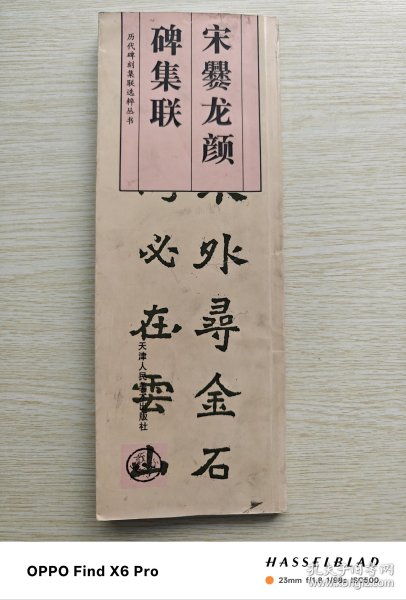 宋爨龙颜
碑集联
历代碑刻集联选粹丛书
外尋金石
必在雲山
天津人民美术出版社
OPPO Find X6 Pro
HASSELBLAD
23mm f/1.8 1/68s ISO500
孔夫子旧书网